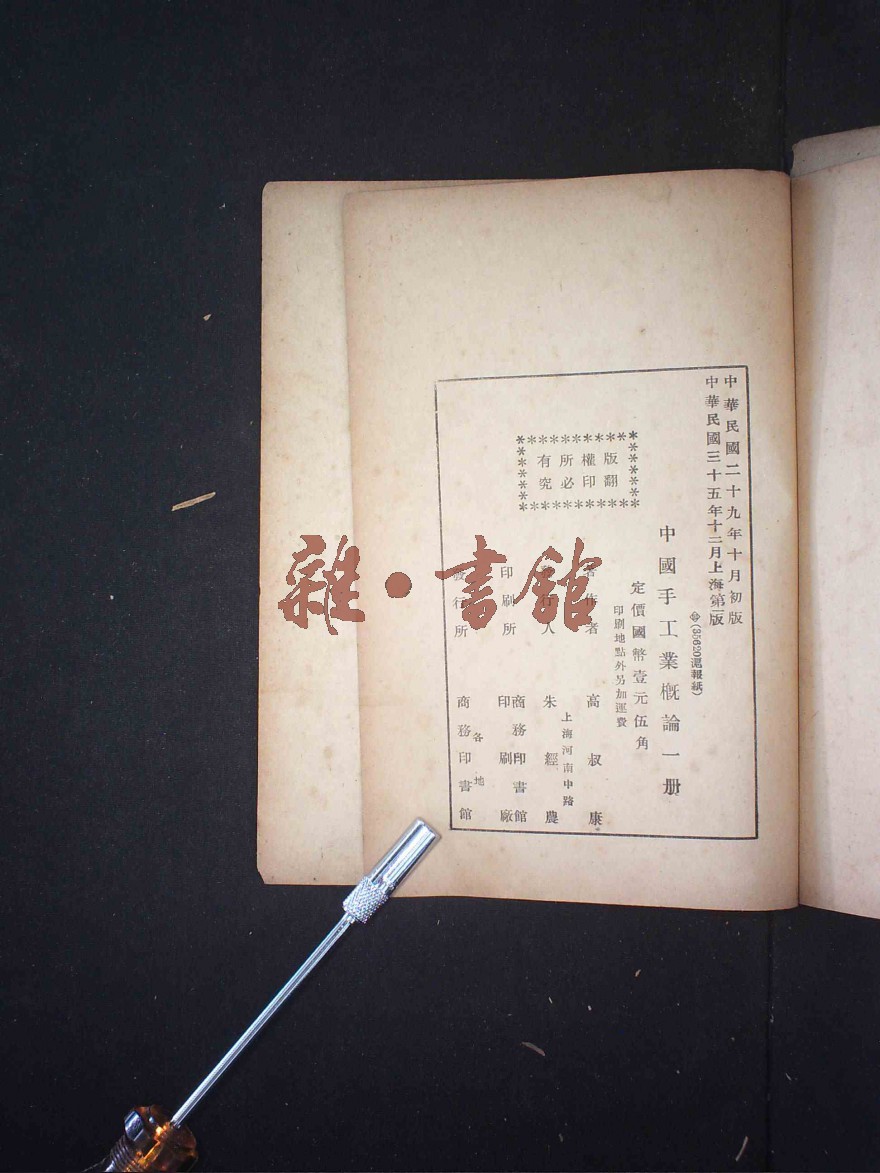 中華民國二十九年十月初版
中華民國三十五年十二月上海第二版
(35620滬報紙)
中國手工業概論一册
定價國幣壹元伍角
印刷地點外另加運費
版權所有
翻印必究
著作者 高叔康
上海河南中路
人 朱經農
印刷所 商務印書館
印刷廠
發行所 各地
商務印書館
雜·書館